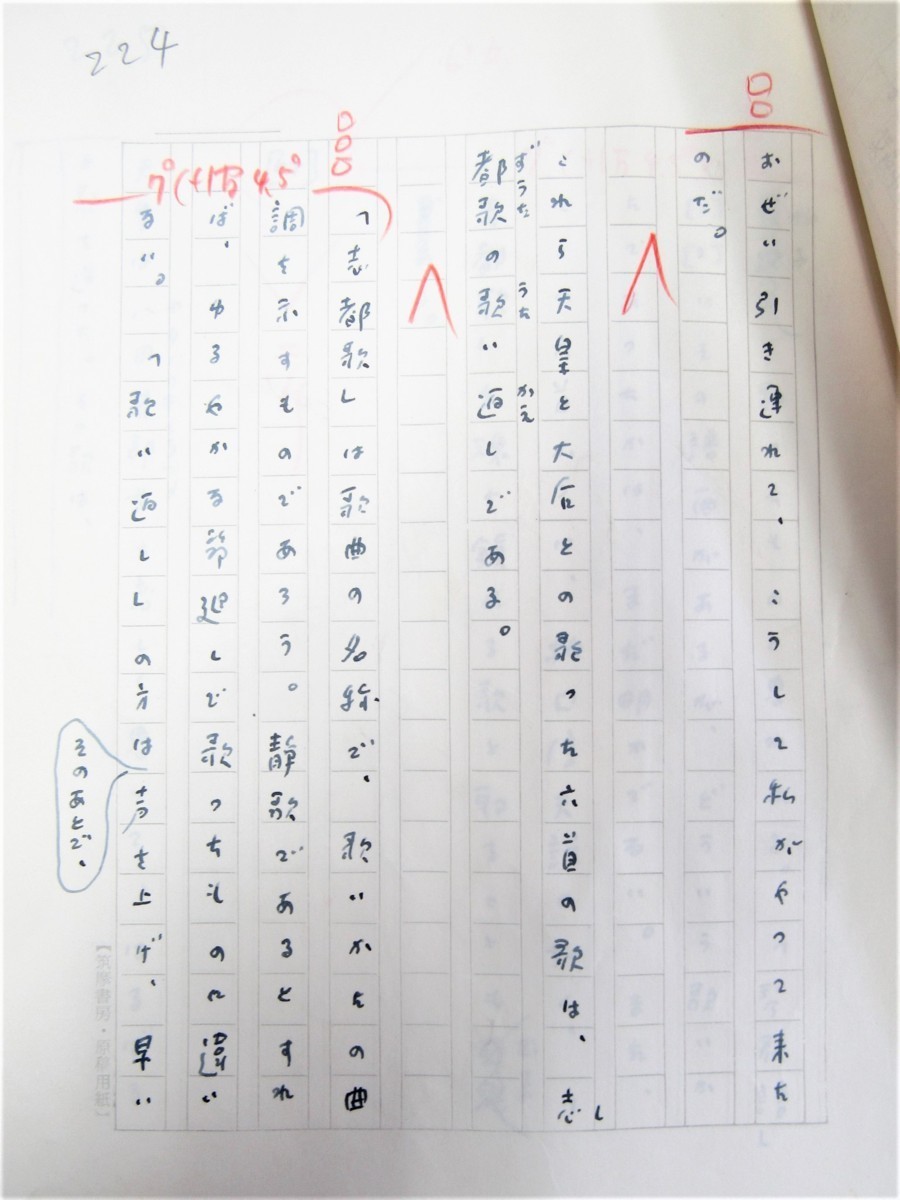 224
おぜい引き連れて、こうして私がやって来た
のだ。
これら天皇と大后との歌った六首の歌は、志
都歌の歌い返しである。
しずうた
うた
かえ
「志都歌」は歌曲の名称で、歌いかたの曲
調を示すものであろう。静歌であるとすれ
ば、ゆるやかなる節廻しで歌ったものに違い
ない。「歌い返し」の方は声を上げ、早い
そのあとで、
【筑摩書房・原稿用紙】